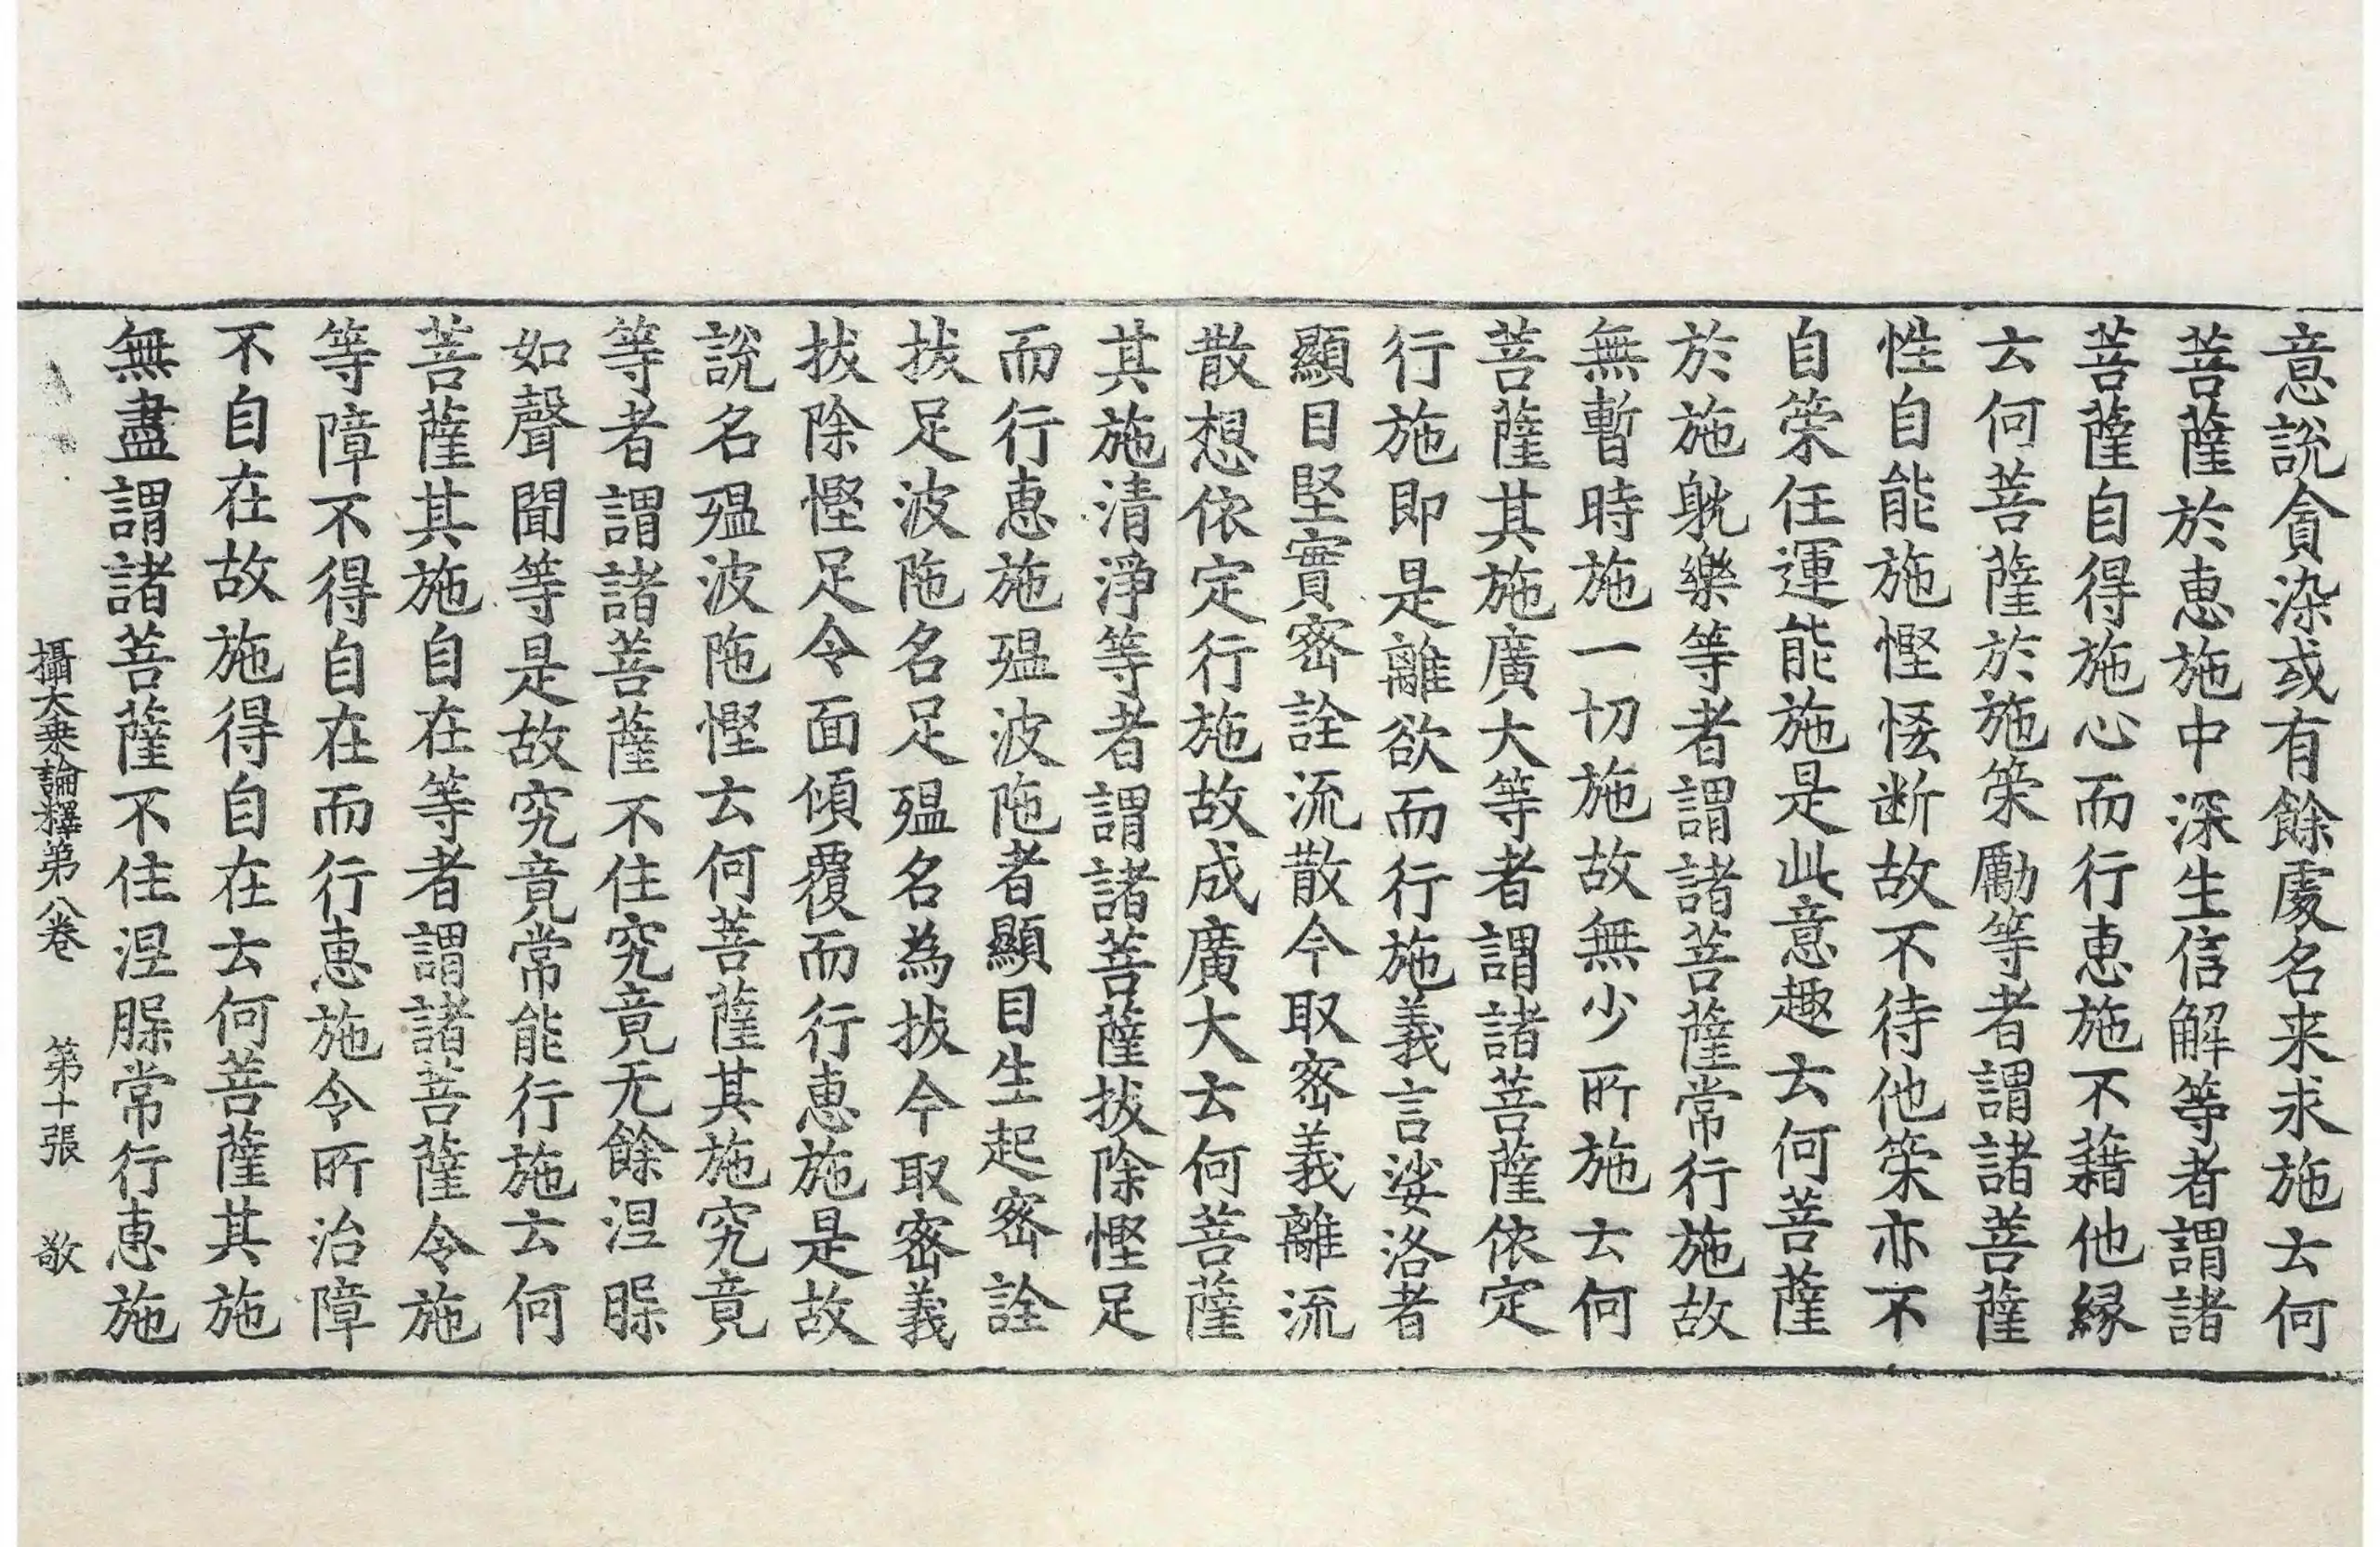 意說貪染或有餘處名来求施去何
菩薩於惠施中深生信解等者謂諸
菩薩自得施心而行惠施不藉他縁
去何菩薩於施䇿勵等者謂諸菩薩
性自能施慳悋断故不待他䇿亦不
自䇿任運能施是此意趣去何菩薩
於施躭樂等者謂諸菩薩常行施故
無暫時施一切施故無少所施去何
菩薩其施廣大等者謂諸菩薩依定
行施即是離欲而行施義言娑洛者
顯目堅實密詮流散今取密義離流
散想依定行施故成廣大去何菩薩
其施清淨等者謂諸菩薩拔除慳足
而行惠施殟波陁者顯目生起密詮
拔足波陁名足殟名為拔今取密義
拔除慳足令面傾覆而行惠施是故
說名殟波陁慳去何菩薩其施究竟
等者謂諸菩薩不住究竟无餘涅槃
如聲聞等是故究竟常能行施去何
菩薩其施自在等者謂諸菩薩令施
等障不得自在而行惠施令所治障
不自在故施得自在去何菩薩其施
無盡謂諸菩薩不住涅槃常行惠施
攝大乗論釋第八卷 第十張 敬